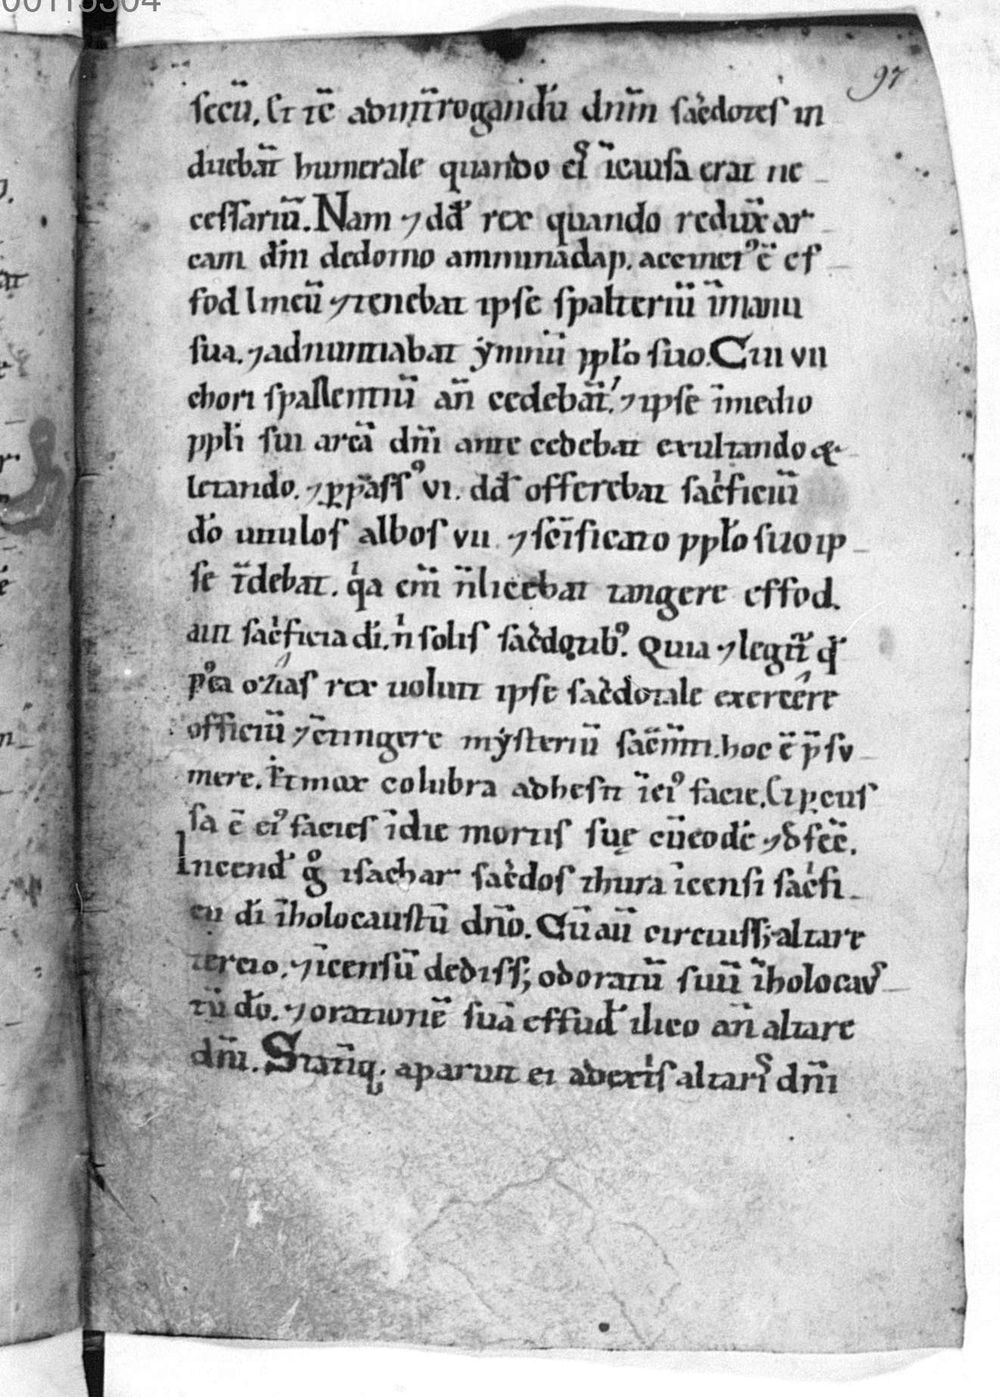 00115304
97
secū. Et tē ad int̄rogandū dn̄m sac̄dotes in
duebat̄ humerale quando ei᷒ īcuisa erat ne
cessariū. Nam ⁊ dd̄ rex quando redux̄ ar
cam dn̄i dedomo amminadap. accinct᷒ ē ef
fod lineū ⁊ tenebat ipse spalteriū īmanu
sua. ⁊ adnuntiabat ẏmnū pp̄lo suo. Cui vii
chori spallentiū an̄ cedebat̄. ⁊ ipse īmedio
pp̄li sui arcā dn̄i ante cedebat exultando &
letando. ⁊ p̱ pass᷒ vi. dd̄ offerebat sac̄ficiū
dō uitulos albos vii ⁊ sc̄ificato pp̄lo suo ip
se r̄debat. q̇a em̄ n̄ licebat tangere effod.
aut sac̄ficia dī. n̄ solis sac̄dotib᷒. Quia ⁊ legit̄ qd̄
p᷒ea ozias rex uoluit ipse sac̄dotale exercēre
officiū ⁊ c̄tingere mẏsteriū sac̄m̄tm. hoc ē p̄su
mere. Et mox colubra adhesit īei᷒ facie. Et p̱cus
sa ē ei᷒ facies īdie mortis suę
Incend̄ gͦ isachar sac̄dos thura īcensi sac̄fi
cii dī īholocaustū dn̄o. Cū aū circuiss; altare
tercio. ⁊ īcensū dediss; odoratū suū īholocaus
tū dō. ⁊ orationē suā effud̄ ilico an̄ altare
dn̄i. Statīq; aparuit ei adextis altaris dn̄i